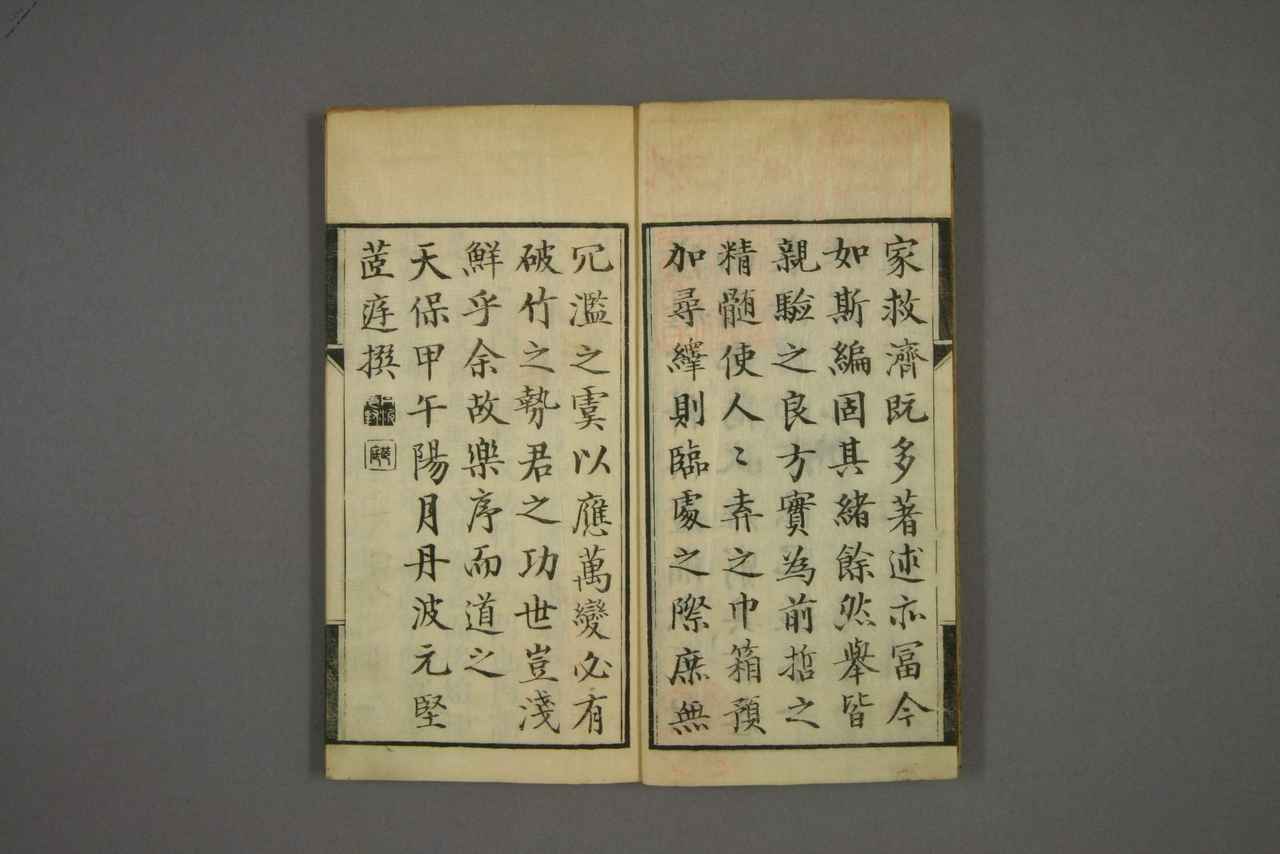 家救濟既多著述亦冨今
如斯編固其緒餘然舉皆
親驗之良方實為前哲之
精髄使人〻弆之巾箱預
加尋繹則臨處之際庶無
冗濫之虞以應萬變必有
破竹之勢君之功世豈淺
鮮乎余故樂序而道之
天保甲午陽月丹波元堅
茝庭撰